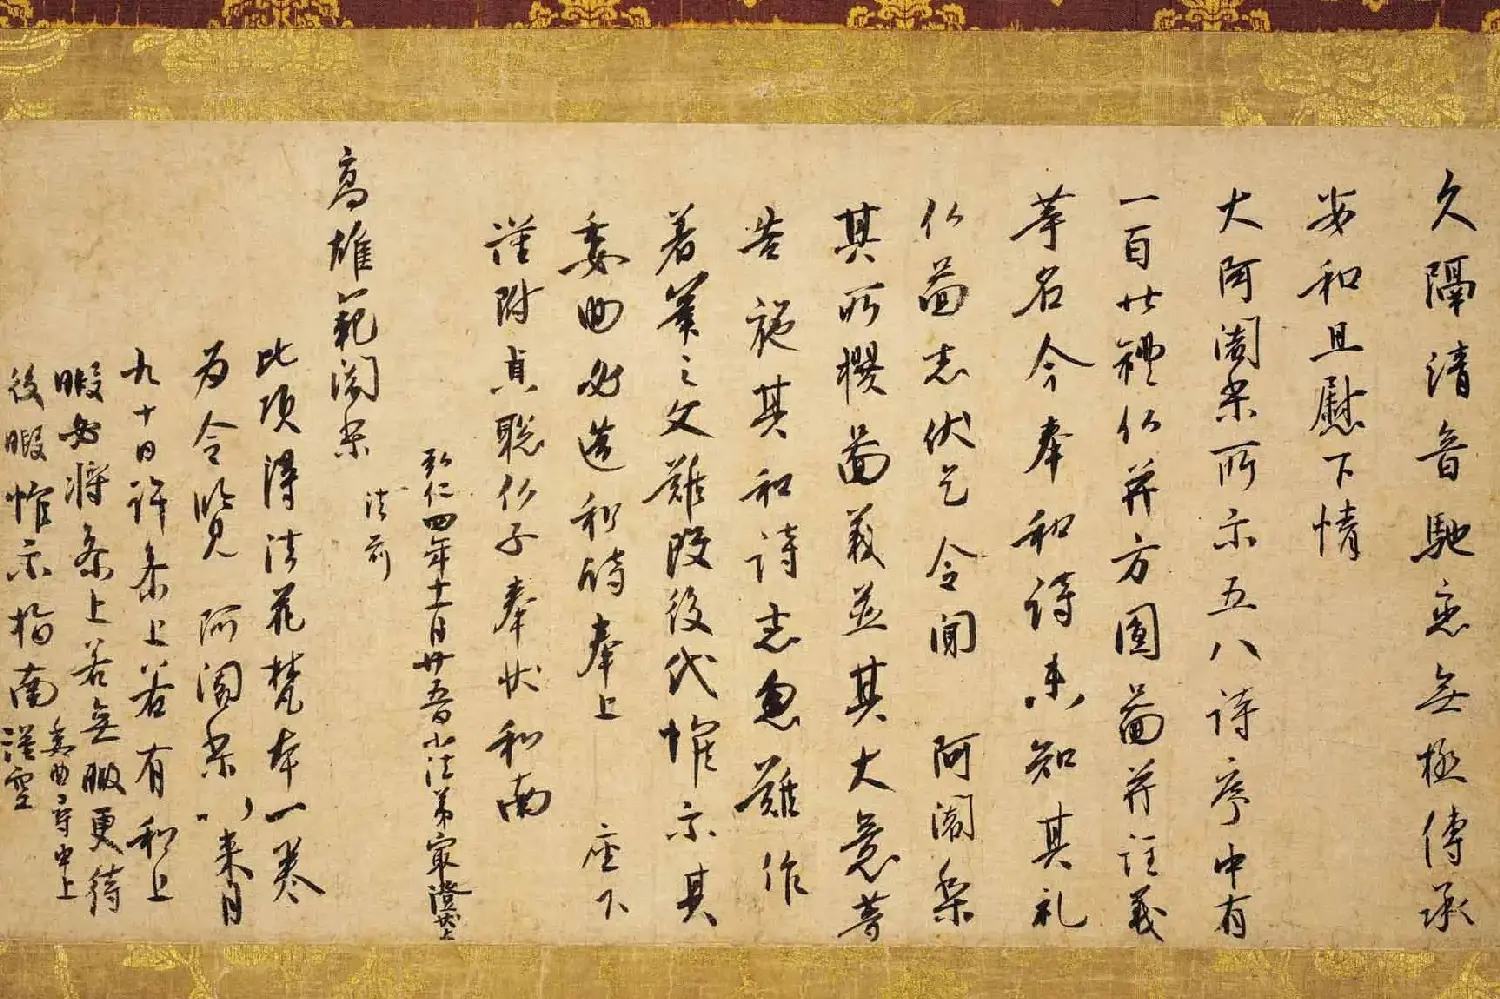 久隔清音馳恋無極傳承
安和且慰下情
大阿闍梨所示五八詩序中有
一百廿禮仏并方圓圖并註義
等名今奉和詩未知其礼
仏圖者伏乞令聞 阿闍梨
其所撰圖義並其大意等
告施其和詩者忽難作
著筆之文難改後代惟示其
委曲必造和詩奉上 座下
謹附貞聡仏子奉状和南
弘仁四年十一月廿五日小法弟最澄状上
高雄範闍梨 法前
此頃得法花梵本一巻
為令覧 阿闍梨以来月
九十日許参上若有和上
暇必将参上若無暇更待
後暇惟示指南 委曲尋申上 謹空